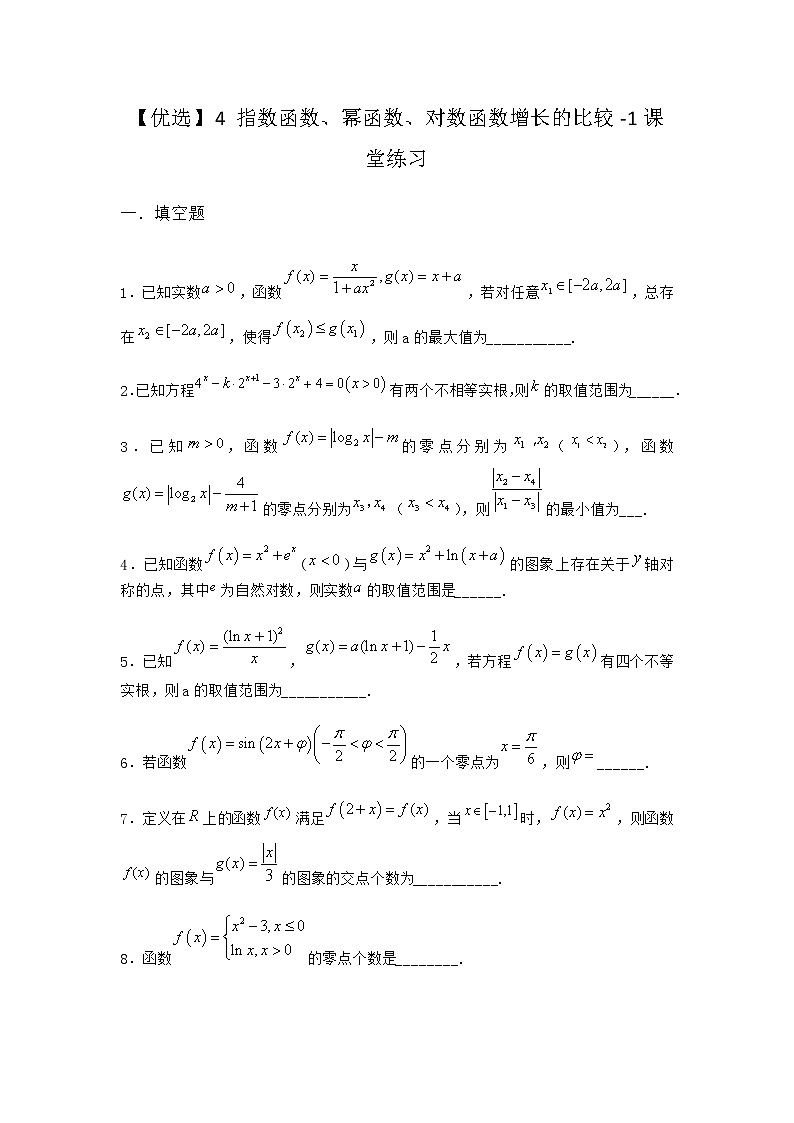 【优选】4 指数函数、幂函数、对数函数增长的比较-1课
堂练习
一．填空题
1.已知实数a > 0，函数f(x) = x/(1+ax²), g(x) = x+a，若对任意x₁∈[−2a,2a]，总存
在x₂∈[−2a,2a]，使得f(x₂)≤g(x₁)，则a的最大值为___________.
2.已知方程4ˣ−k·2ˣ⁺¹−3·2ˣ+4=0(x>0)有两个不相等实根,则k的取值范围为______.
3．已知m>0，函数f(x)=|log₂ x|−m的零点分别为x₁,x₂（x₁<x₂），函数
g(x)=|log₂ x|−4/(m+1)的零点分别为x₃,x₄（x₃<x₄），则|x₂−x₄|/|x₁−x₃|的最小值为___.
4．已知函数f(x)=x²+eˣ（x<0）与g(x)=x²+ln(x+a)的图象上存在关于y轴对
称的点，其中e为自然对数，则实数a的取值范围是______.
5．已知f(x)=(ln x+1)²/x，g(x)=a(ln x+1)−1/2 x，若方程f(x)=g(x)有四个不等
实根，则a的取值范围为___________.
6．若函数f(x)=sin(2x+φ)(−π/2<φ<π/2)的一个零点为x=π/6，则φ=______.
7．定义在R上的函数f(x)满足f(2+x)=f(x)，当x∈[−1,1]时，f(x)=x²，则函数
f(x)的图象与g(x)=|x|/3的图象的交点个数为___________.
8．函数f(x)={x²−3,x≤0 ln x,x>0的零点个数是________.